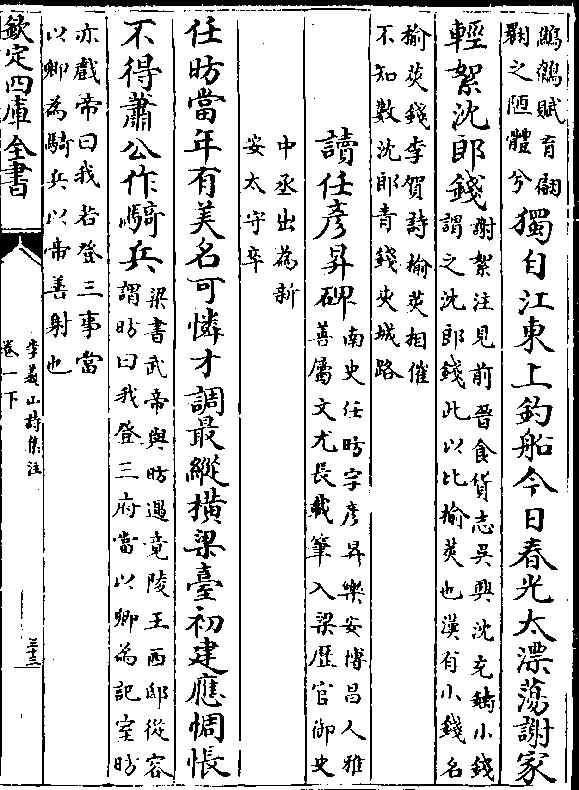 鷦鷯賦育翩
翾之陋體兮
獨自江東上釣船今日春光太漂蕩謝家
輕絮沈郎錢
謝絮注見前晉食貨志吳興沈充鑄小錢
謂之沈郎錢此以比榆莢也漢有小錢名
榆莢錢李賀詩榆莢相催
不知數沈郎青錢夾城路
讀任彥昇碑
南史任昉字彥昇樂安博昌人雅
善屬文尤長載筆入梁歷官御史
中丞出為新
安太守卒
任昉當年有美名可憐才調最縱橫梁臺初建應惆悵
不得蕭公作騎兵
梁書武帝與昉遇竟陵王西邸從容
謂昉曰我登三府當以卿為記室昉
亦戲帝曰我若登三事當
以卿為騎兵以帝善射也
欽定四庫全書
李義山詩集注
卷一下
三十三